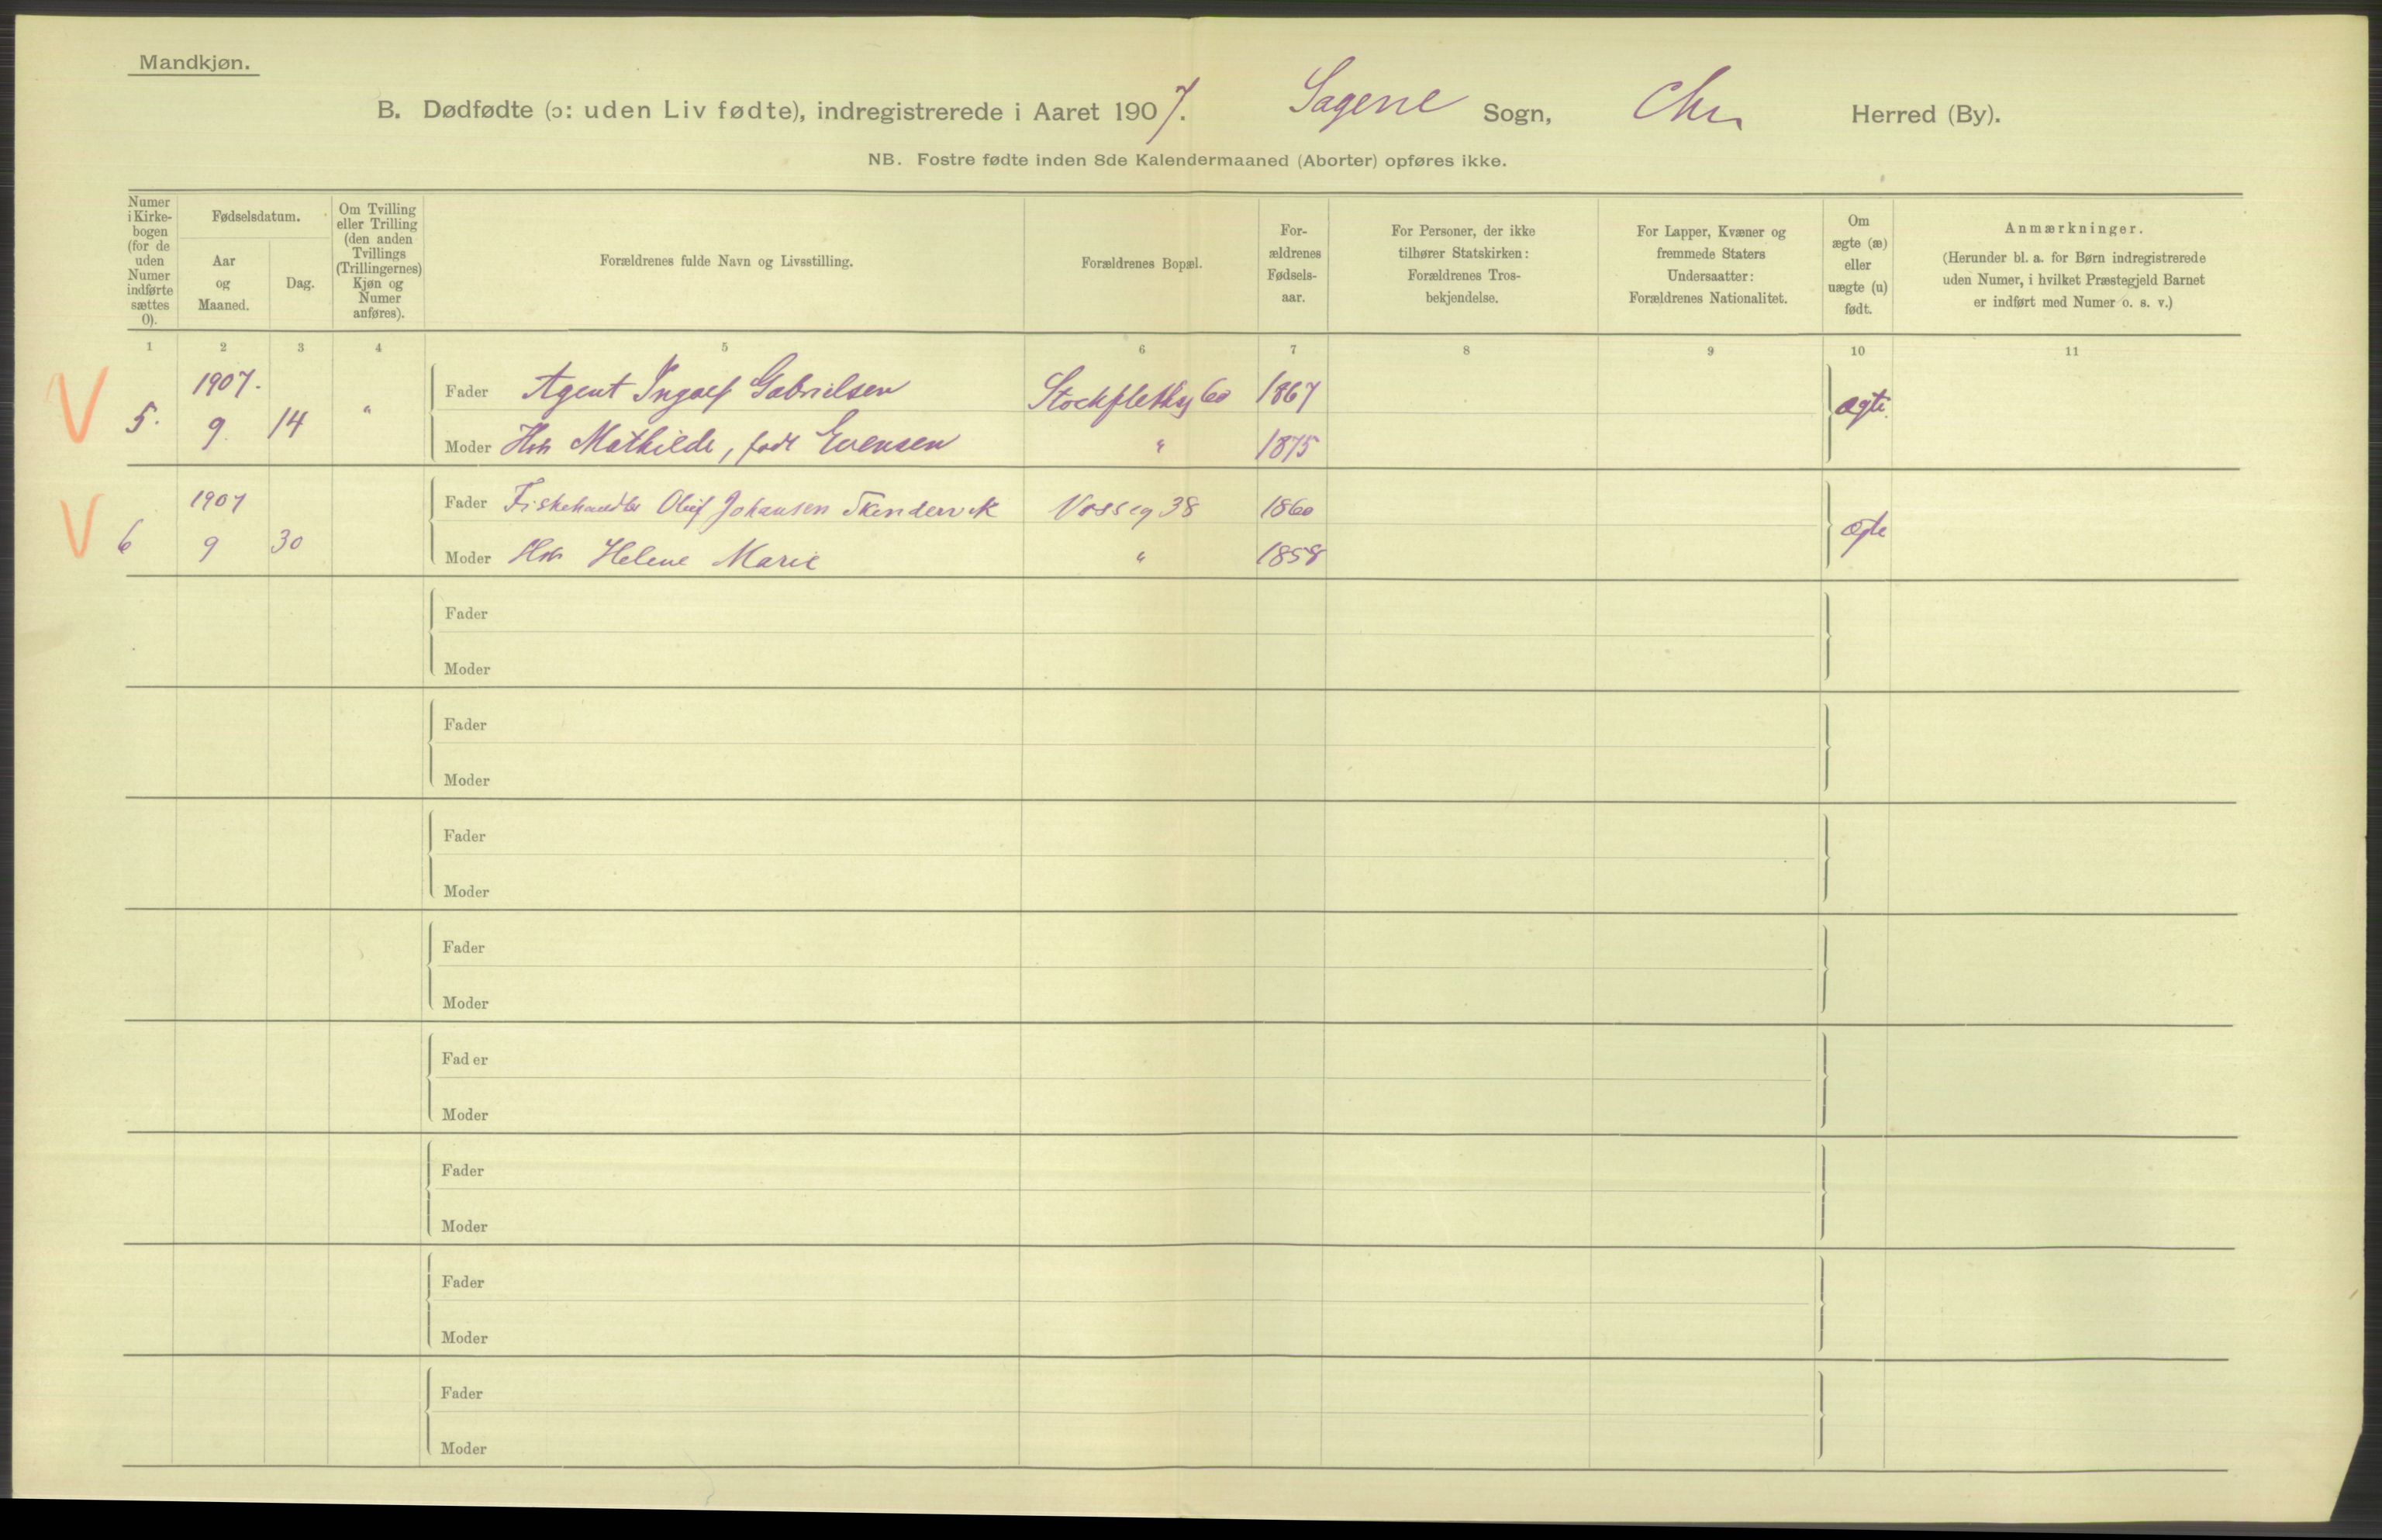 Mandkjøn.
B. Dødfødte (ɔ: uden Liv fødte), indregistrerede i Aaret 1907. Sagene Sogn, Chr. Herred (By).
NB. Fostre fødte inden 8de Kalendermaaned (Aborter) opføres ikke.
Numer i Kirkebogen (for de uden Numer indførte sættes 0).
Fødselsdatum.
Aar og Maaned.
Dag.
Om Tvilling eller Trilling (den anden Tvillings (Trillingernes) Kjøn og Numer anføres).
Forældrenes fulde Navn og Livsstilling.
Forældrenes Bopæl.
Forældrenes Fødselsaar.
For Personer, der ikke tilhører Statskirken: Forældrenes Trosbekjendelse.
For Lapper, Kvæner og fremmede Staters Undersaatter: Forældrenes Nationalitet.
Om ægte (æ) eller uægte (u) født.
Anmærkninger.
(Herunder bl. a. for Børn indregistrerede uden Numer, i hvilket Præstegjeld Barnet er indført med Numer o. s. v.)
1 2 3 4 5 6 7 8 9 10 11
V 5. 1907. 9. 14 " Fader Agent Ingolf Gabrielsen Stockflethg 60 1867 ægte.
Moder Hst Mathilde, født Evensen " 1875
V 6 1907 9 30 Fader Fiskehandler Oluf Johansen Vosseg 38 1860 ægte
Moder Hst Helene Marie " 1858
Fader
Moder
Fader
Moder
Fader
Moder
Fader
Moder
Fader
Moder
Fader
Moder
Fader
Moder
Fader
Moder